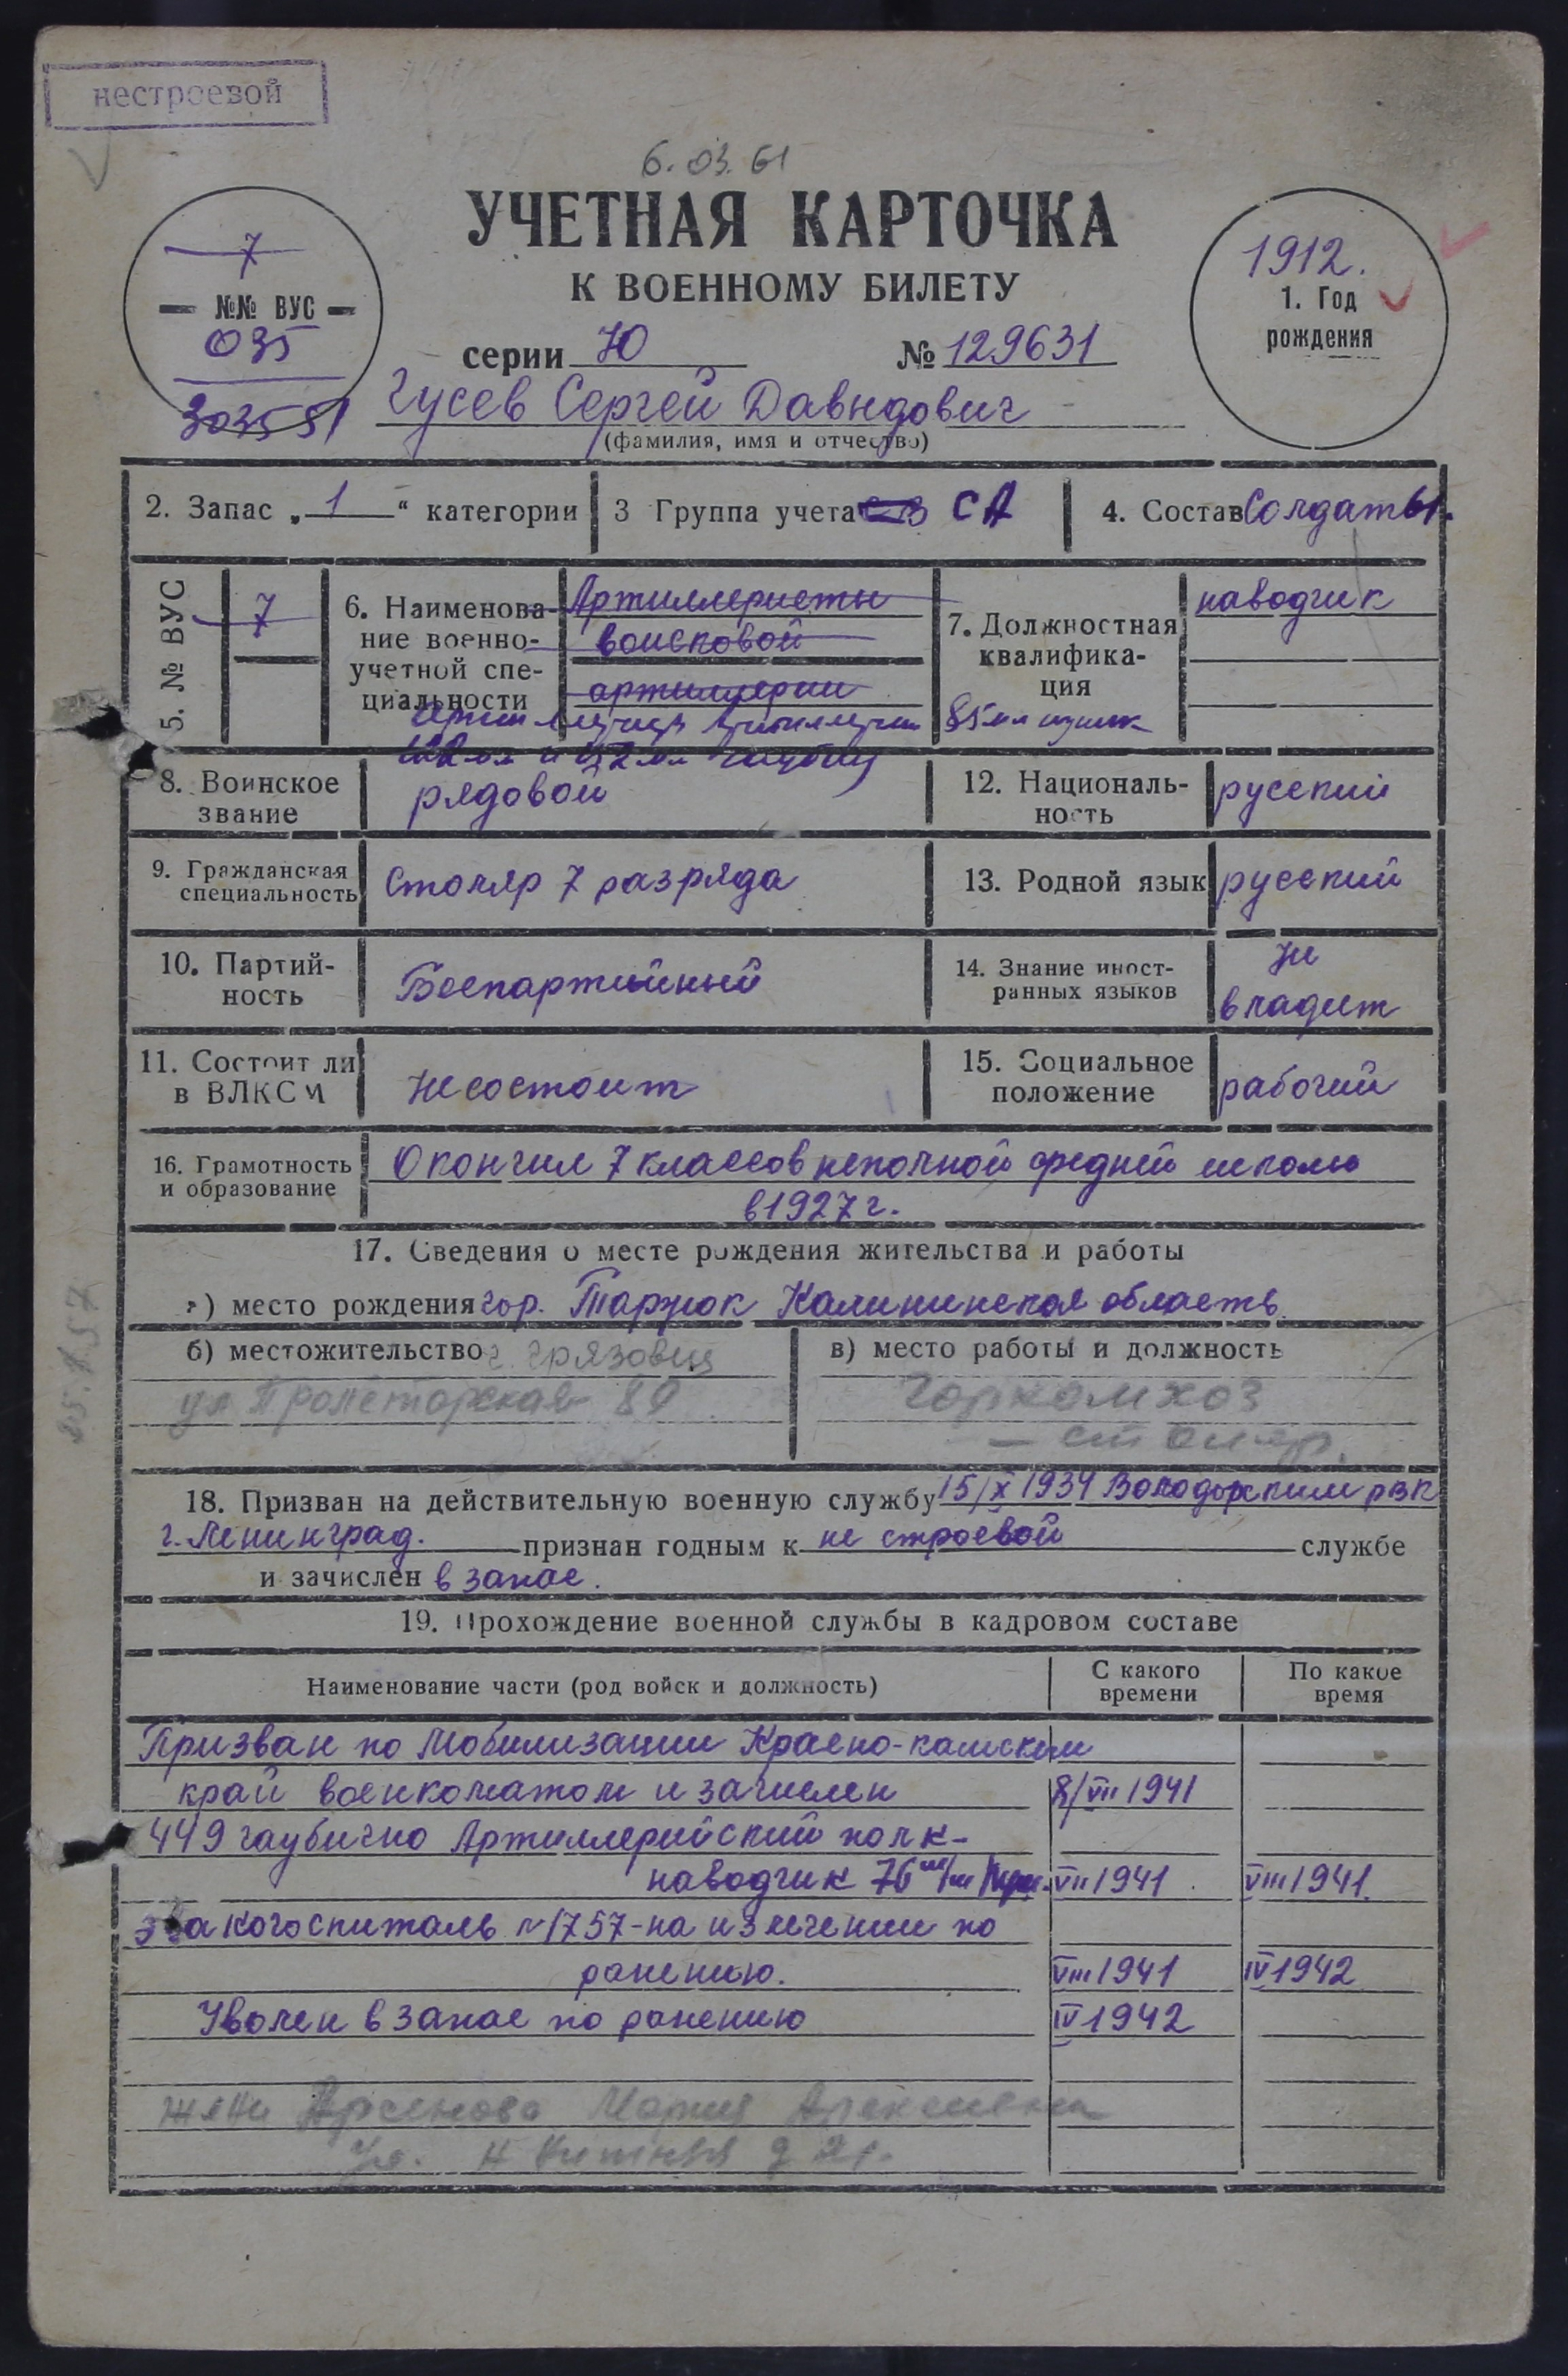 нестроевой
6. 03. 61
УЧЕТНАЯ КАРТОЧКА
К ВОЕННОМУ БИЛЕТУ
7
— №№ ВУС —
035
серии Ю № 129631
1912.
1. Год
рождения
Гусев Сергей Давидович
(фамилия, имя и отчество)
2. Запас „ 1 “ категории
3 Группа учета СА
4. Состав Солдаты.
5. № ВУС 7
6. Наименова-
ние военно-
учетной спе-
циальности
Артиллеристы
войсковой
артиллерии
7. Должностная
квалифика-
ция
наводчик
8. Воинское
звание
рядовой
12. Националь-
ность
русский
9. Гражданская
специальность
столяр 7 разряда
13. Родной язык русский
10. Партий-
ность
Беспартийный
14. Знание иност-
ранных языков
не
владеет
11. Состоит ли
в ВЛКСМ
Не состоит
15. Социальное
положение
рабочий
16. Грамотность
и образование
Окончил 7 классов неполной средней школы
в 1927 г.
17. Сведения о месте рождения жительства и работы
а) место рождения гор. Таржок Калининская область
б) местожительство г. Грязовец
ул Пролетарская 89
в) место работы и должность
Горкомхоз
— столяр.
18. Призван на действительную военную службу 15/X 1934 Володарским рвк
г. Ленинград. признан годным к не строевой службе
и зачислен в запас.
19. Прохождение военной службы в кадровом составе
Наименование части (род войск и должность)
С какого
времени
По какое
время
Призван по Мобилизации Красно-камским
край военкоматом и зачислен 8/VII 1941
449 гаубично Артиллерийский полк-
наводчик 76 м/м VII 1941 VIII 1941.
эвакогоспиталь №1757-на излечении по
ранению. VIII 1941 IV 1942
Уволен в запас по ранению IV 1942
жена Арсенова Мария Алексеевна
ул.